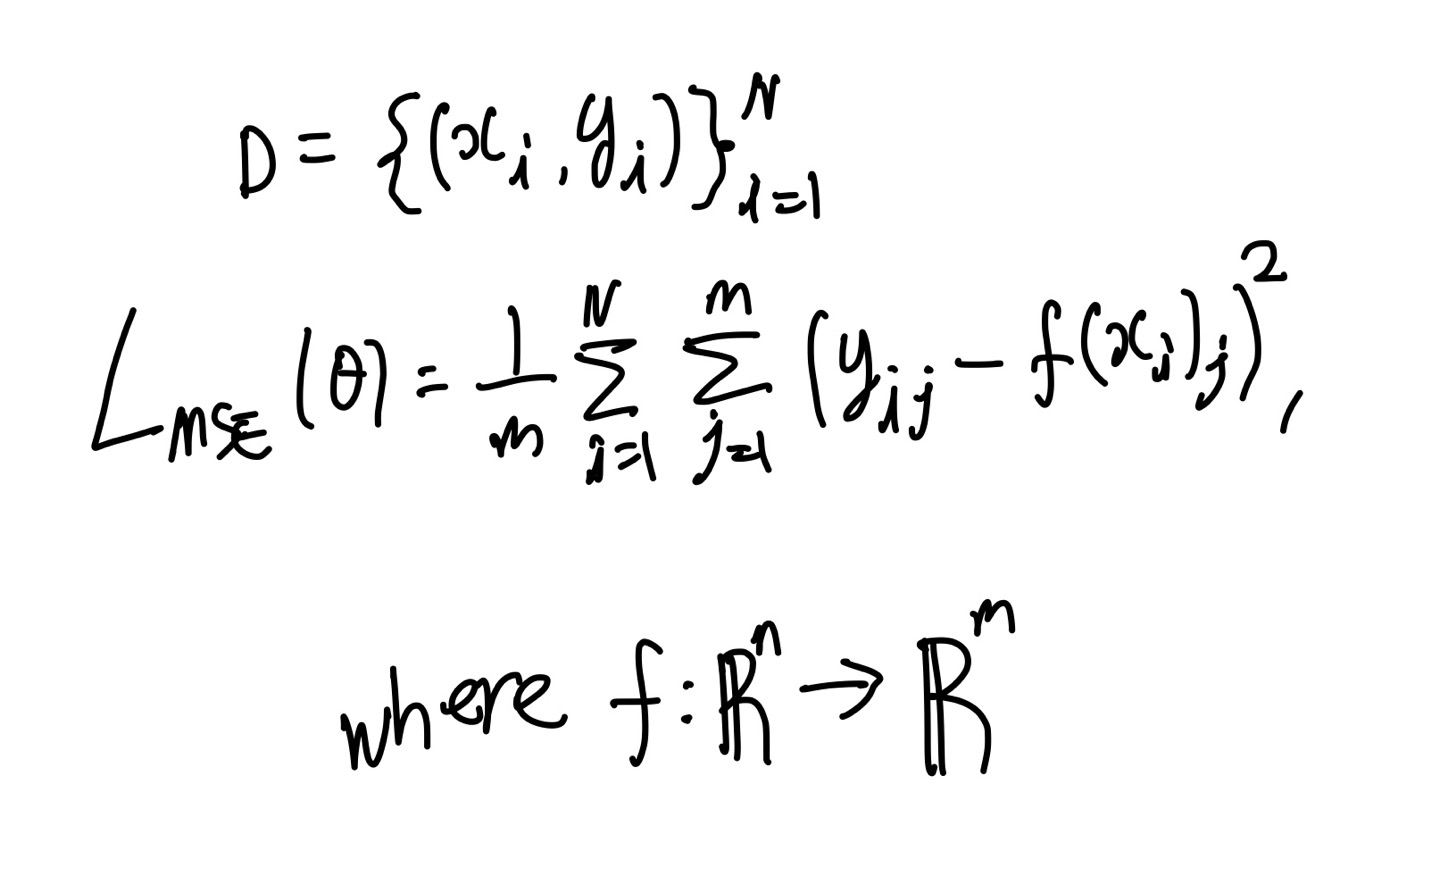 D = {(x_i, y_i)}_{i=1}^N
L_{MSE}(θ) = \frac{1}{m} \sum_{i=1}^{N} \sum_{j=1}^{m} (y_{ij} - f(x_i)_j)^2,
where f: ℝ^n → ℝ^m